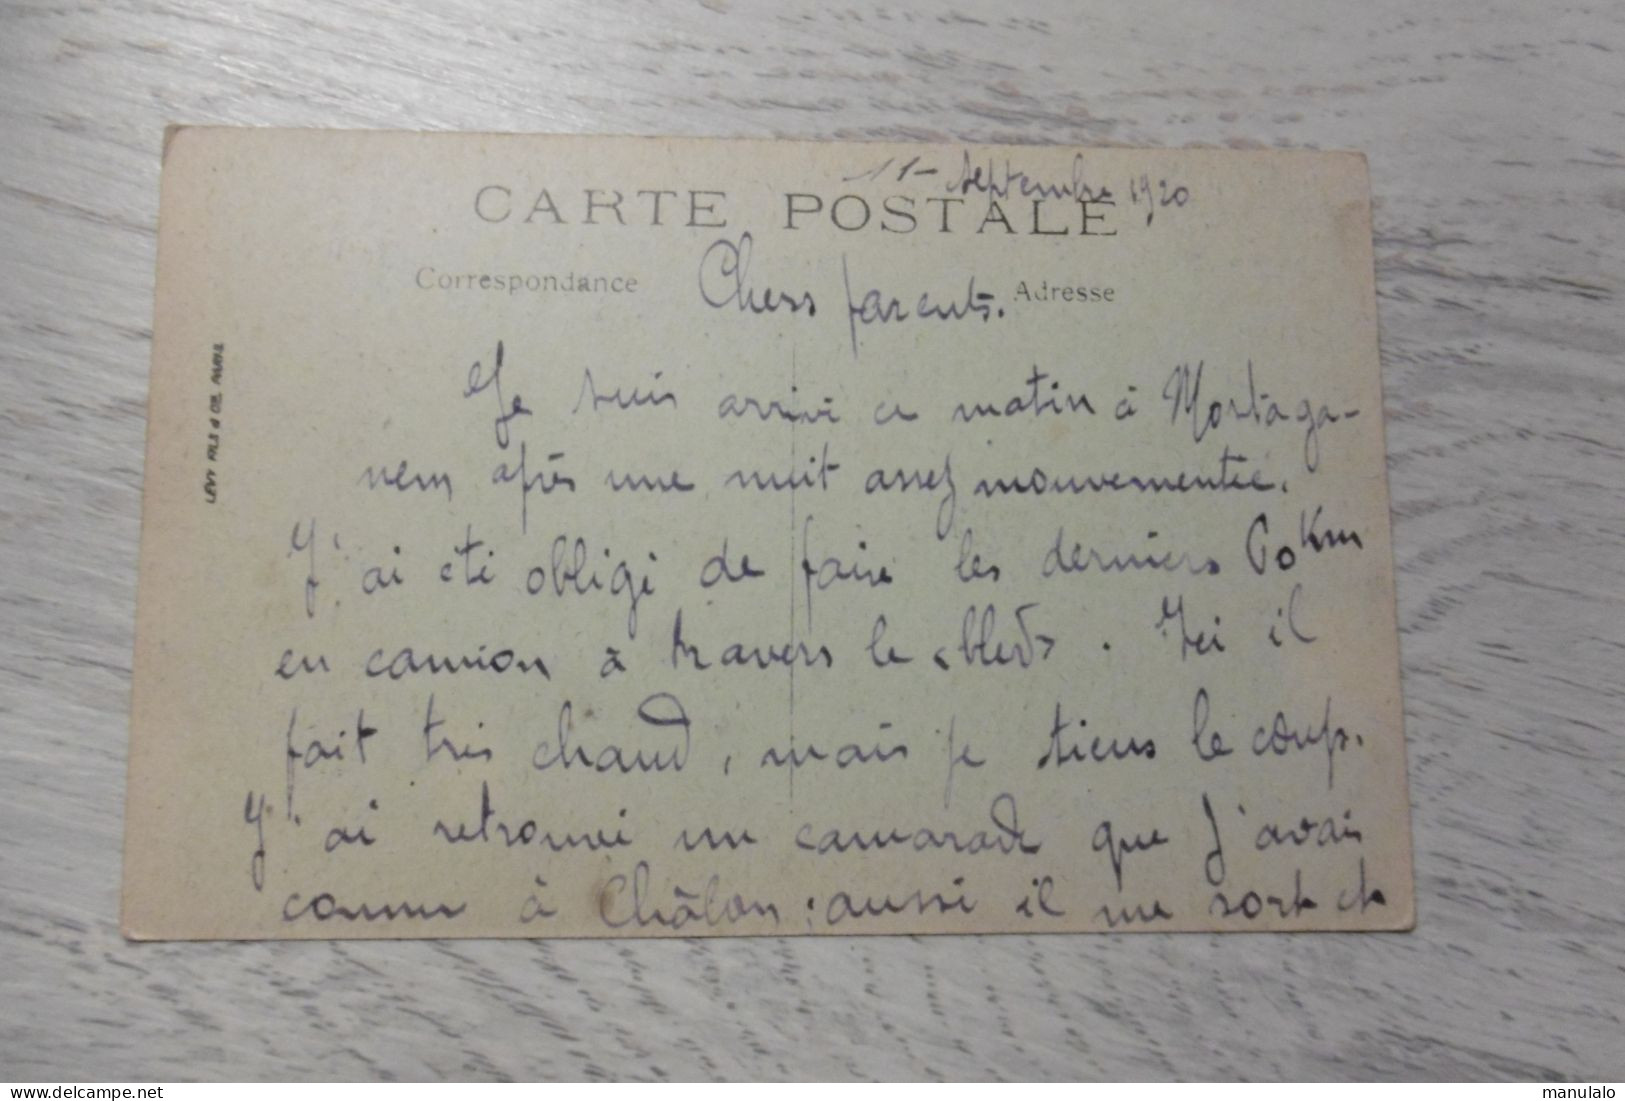 11 - septembre 1920
CARTE POSTALE
Correspondance
Adresse
Chers parents.
Je suis arrivé ce matin à Mostaga-
nem après une nuit assez mouvementée.
J'ai été obligé de faire les derniers 60 Km
en camion à travers le "bled". Ici il
fait très chaud, mais je tiens le coup.
J'ai retrouvé un camarade que j'avais
connu à Châlon : aussi il me sort et
LÉVY FILS & CIE PARIS
delcampe.net
manulalo